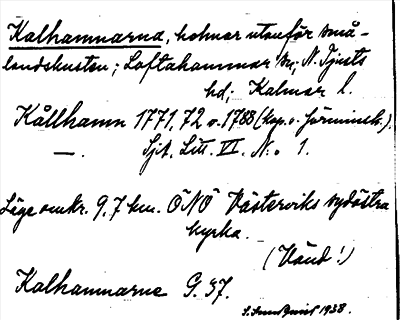 Kalhamnarna, holmar utanför små-
landskusten; Loftahammar sn, N. Tjusts
hd; Kalmar l.
Kållhamn 1771, 72 o. 1788 (kop. o. förminsk.).
—. Sjk. Litt. VI. N:o 1.
Läge omkr. 9,7 km. ÖNÖ Västerviks sydöstra
kyrka.
(Vänd!)
Kalhamnarne G. 37.
1938.